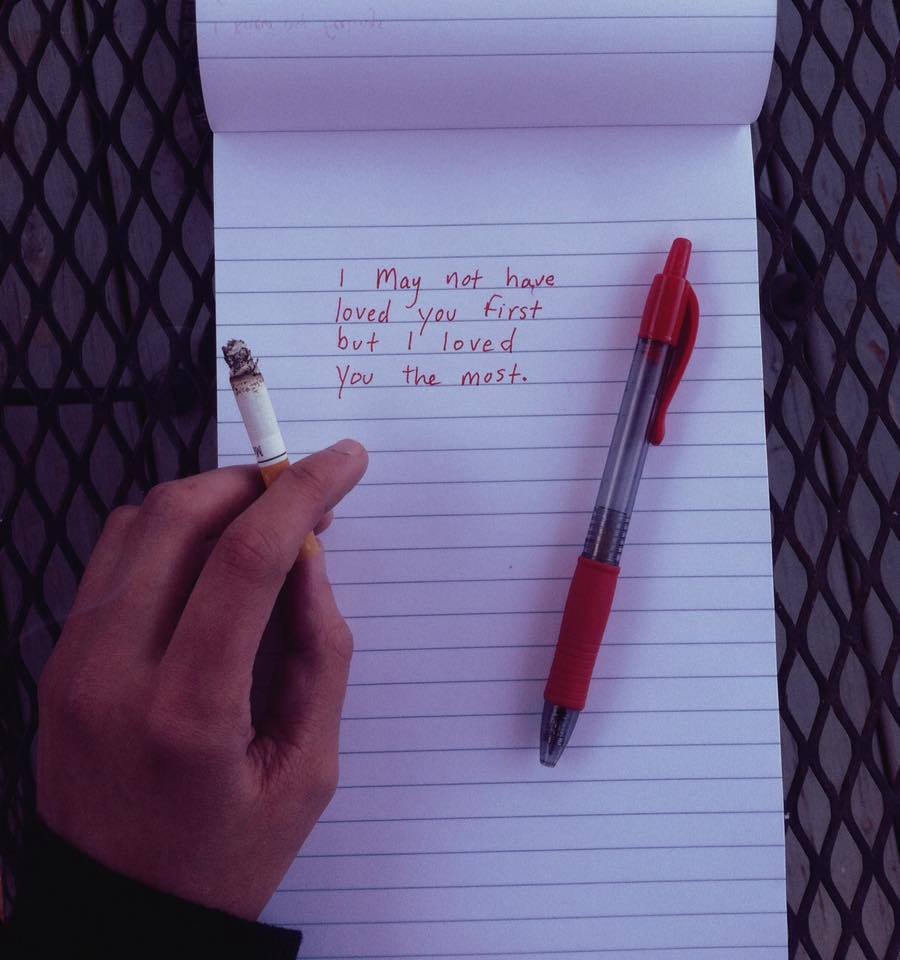 I May not have
loved you first
but I loved
You the most.